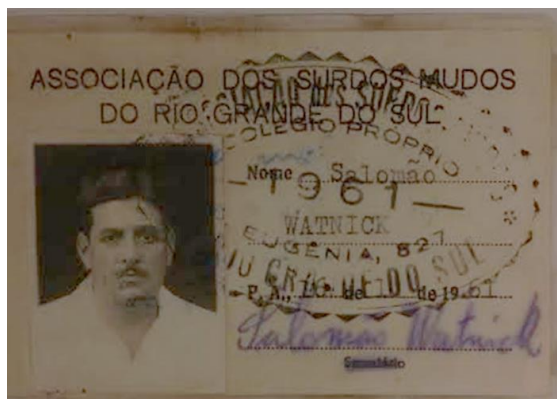 ASSOCIAÇÃO DOS SURDOS MUDOS
DO RIO GRANDE DO SUL
COLEGIO PRÓPRIO
Nome Salomão
— 1961 —
WATNICK
EUGÊNIA, 527
GRANDE DO SUL
P. A., de de 19 61
Salomão Watnick
Secretário